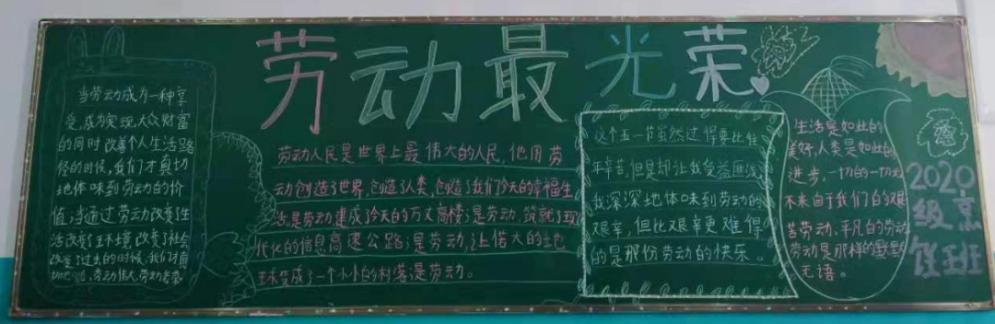 劳动最光荣
当劳动成为一种享
受,成为实现大众财富
的同时改善个人生活路
径的时候,我们才真切
地体味到劳动的价
值;当通过劳动改变了生
活改变了环境改变了社会
改变了过去的时候,我们才真
劳动伟大,劳动光荣
劳动人民是世界上最伟大的人民,他用劳
动创造了世界,创造了人类,创造了我们今天的幸福生
活是劳动建成了今天的万丈高楼;是劳动,筑就了现
代化的信息高速公路;是劳动,让偌大的地
球变成了一个小小的村落是劳动。
这个五一节虽然过得要比往
年辛苦,但是却让我受益匪浅
我深深地体味到劳动的
艰辛,但比艰辛更难得
的是那份劳动的快乐。
生活是如此的
美好,人类是如此的
进步,一切的一切无
不来自于我们的艰
苦劳动,平凡的劳动
劳动是那样的默默
无语。
2020
级烹
饪班